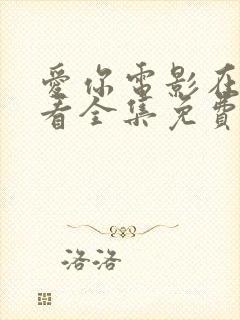 愛你電影在
看全集免費
洛洛